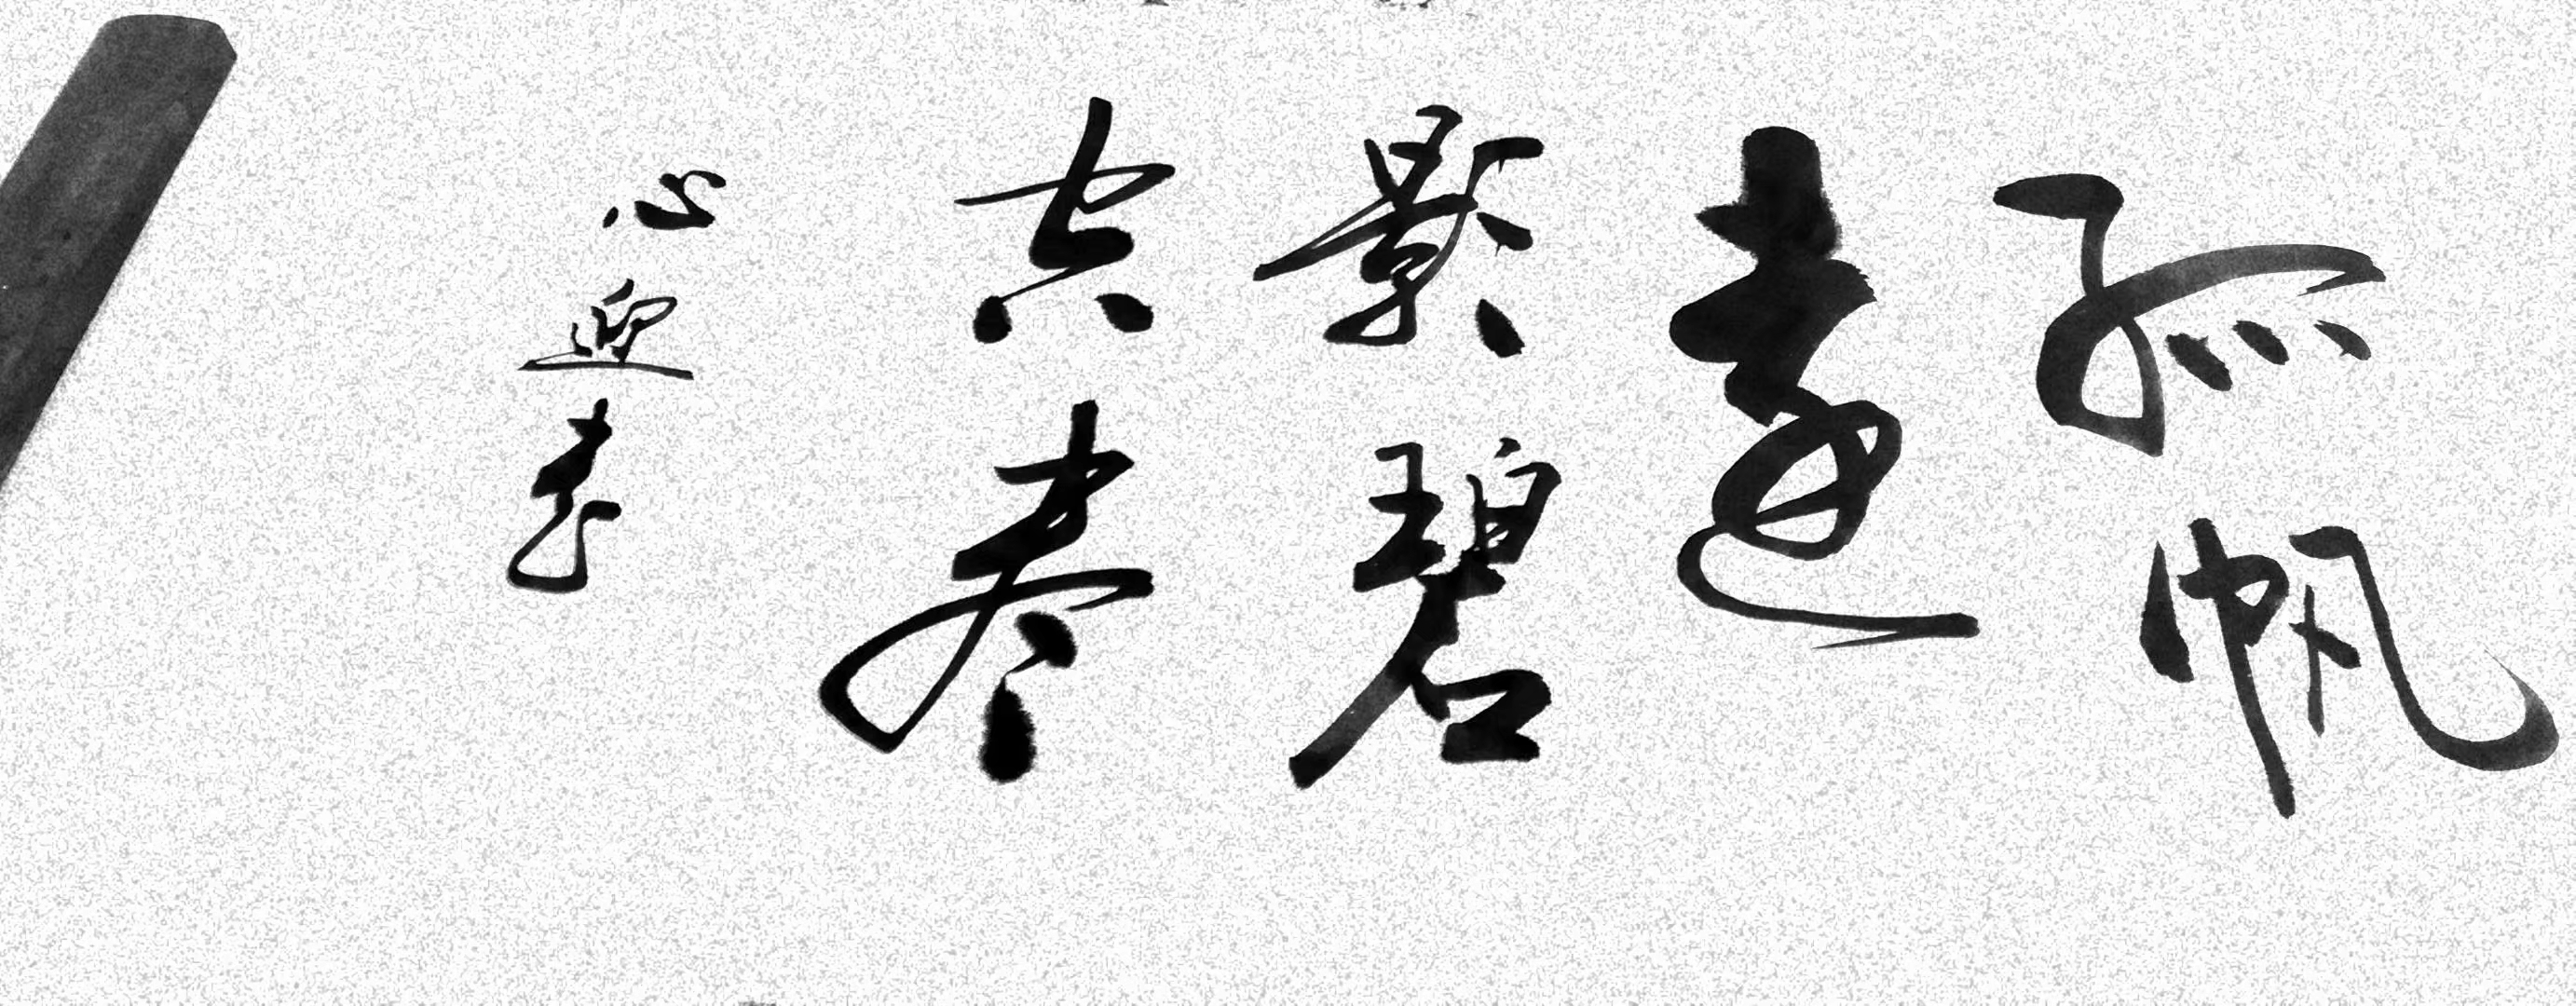 孤帆
遠
影碧
空盡
心迎书